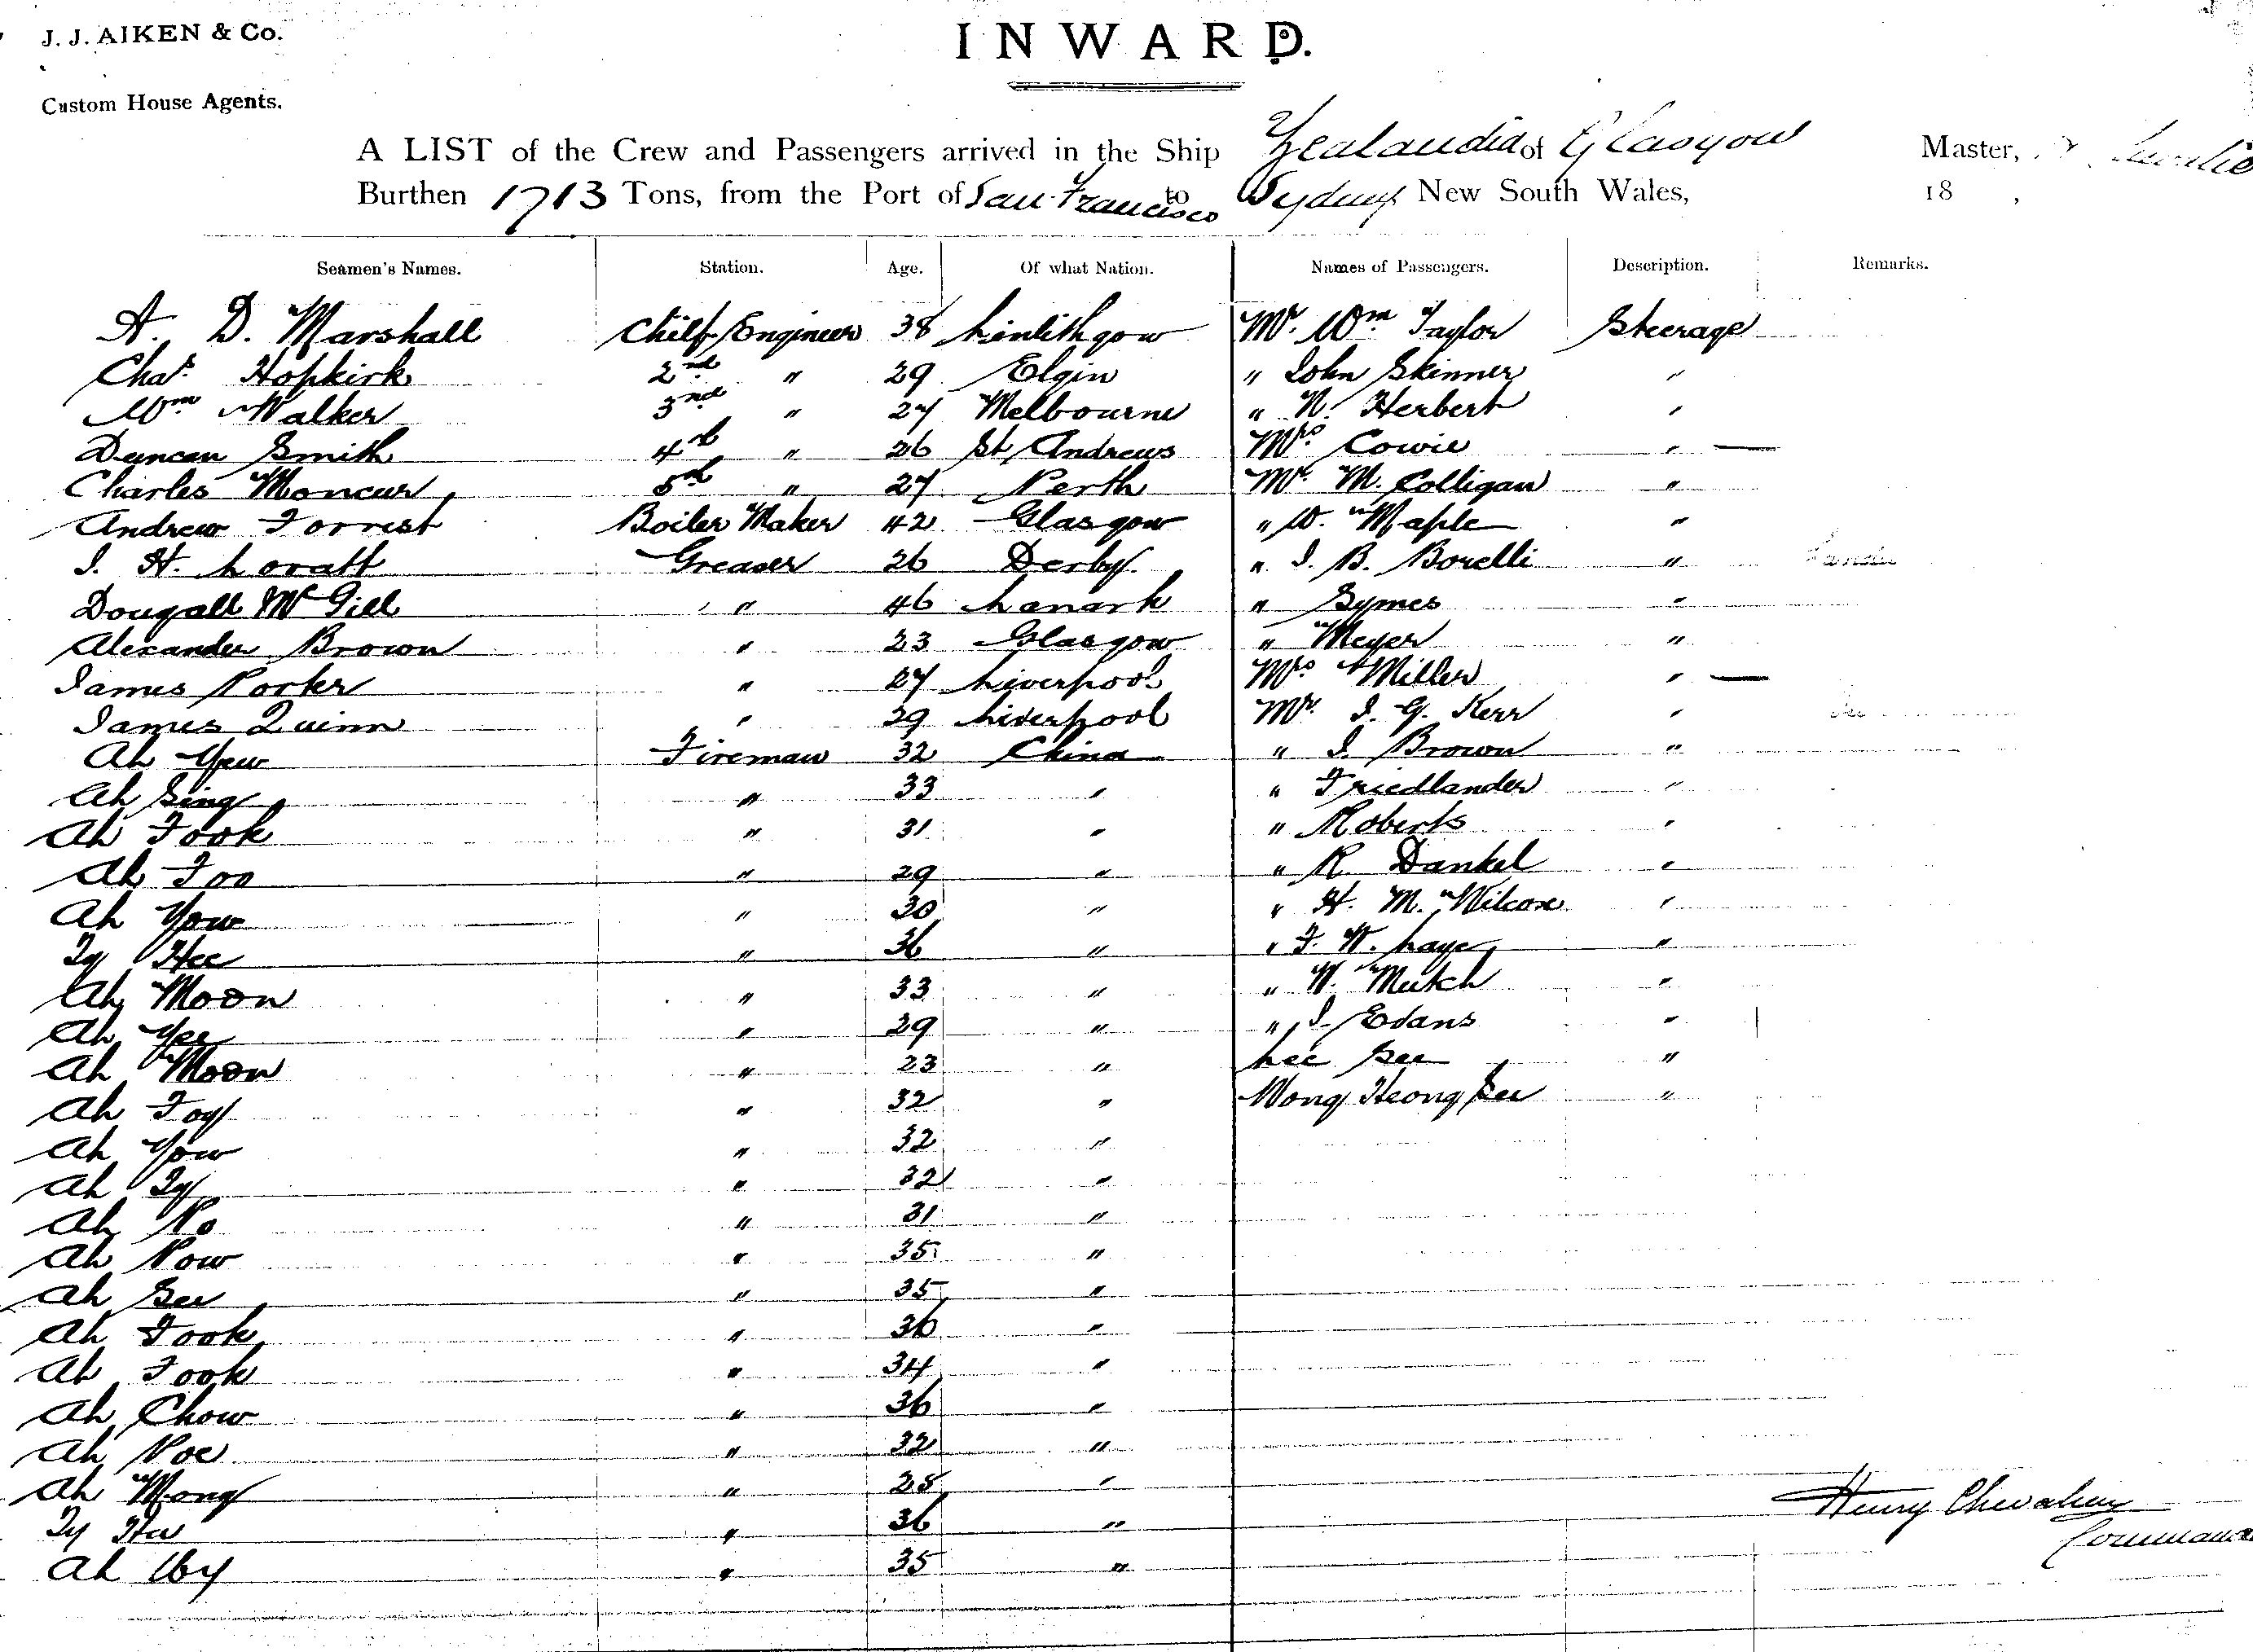 J. J. AIKEN & Co.
INWARD.
Custom House Agents.
A LIST of the Crew and Passengers arrived in the Ship Zealandia of Glasgow Master,
Burthen 1713 Tons, from the Port of San Francisco to Sydney New South Wales, 18 ,
Seamen's Names. Station. Age. Of what Nation. Names of Passengers. Description. Remarks.
A. D. Marshall Chief Engineer 38 Linlithgow Mr. Wm Taylor Steerage
Chas. Hopkirk 2nd " 29 Elgin " John Skinner "
Wm Walker 3rd " 27 Melbourne " N. Herbert "
Duncan Smith 4th " 26 St Andrews Mrs Cowie " —
Charles Moncur 5th " 27 Perth Mr. M. Colligan "
Andrew Forrest Boiler Maker 42 Glasgow " W. Maple "
J. H. Lovatt Greaser 26 Derby " J. B. Borelli "
Dougall McGill " 46 Lanark " Symes "
Alexander Brown " 23 Glasgow " Meyer "
James Porter " 27 Liverpool Mrs Miller " —
James Quinn " 29 Liverpool Mr. J. G. Kerr "
Ah Yew Fireman 32 China " J. Brown "
Ah Sing " 33 " " Friedlander "
Ah Fook " 31 " " Roberts "
Ah Foo " 29 " " R. Dankel "
Ah Yow " 30 " " H. M. Wilcox "
Ty Hee " 36 " " F. W. Laye "
Ah Moon " 33 " " W. Mutch "
Ah Yee " 29 " " J. Evans "
Ah Moon " 23 " Lee See "
Ah Foy " 32 " Wong Heong See "
Ah Yow " 32 "
Ah Ty " 32 "
Ah Po " 31 "
Ah Pow " 35 "
Ah See " 35 "
Ah Fook " 36 "
Ah Fook " 34 "
Ah Chow " 36 "
Ah Poe " 32 "
Ah Mong " 28 "
Henry Chevalier
Ty Hee " 36 "
Ah " 35 "